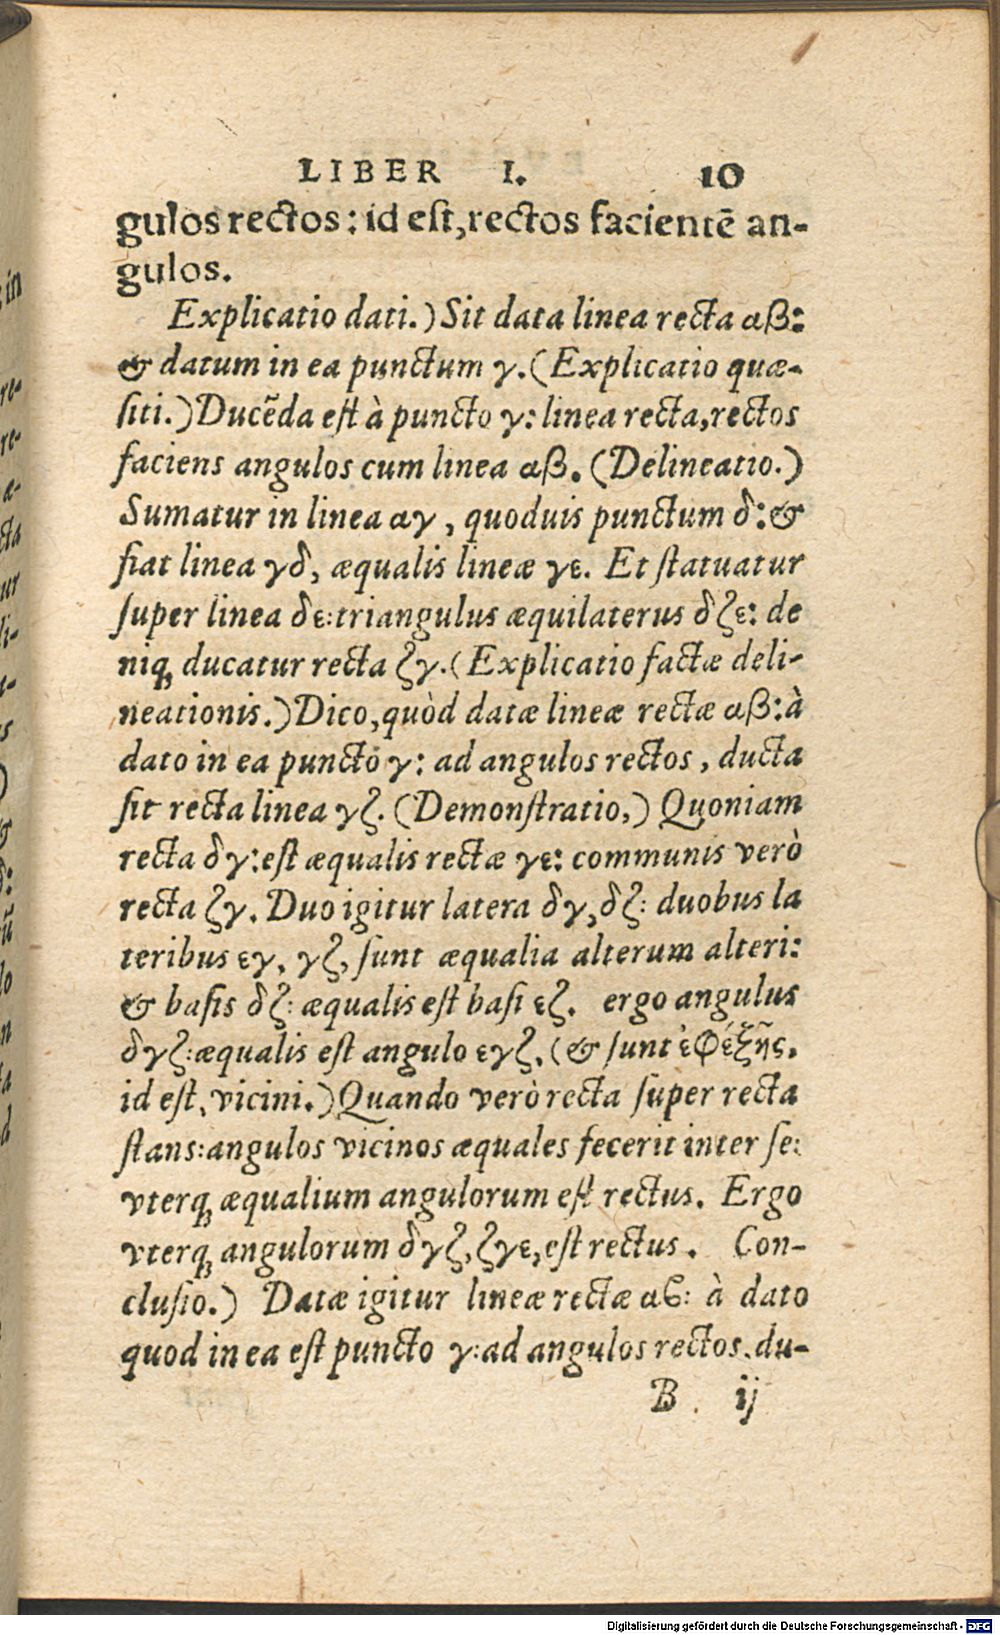 LIBER I. 10
gulos rectos: id est, rectos facientē an-
gulos.
Explicatio dati.) Sit data linea recta αβ:
& datum in ea punctum γ. (Explicatio quæ-
siti.) Ducēda est à puncto γ: linea recta, rectos
faciens angulos cum linea αβ. (Delineatio.)
Sumatur in linea αγ, quoduis punctum δ: &
fiat linea γδ, æqualis lineæ γε. Et statuatur
super linea δε: triangulus æquilaterus δζε: de
niq; ducatur recta ζγ. (Explicatio factæ deli-
neationis.) Dico, quòd datæ lineæ rectæ αβ: à
dato in ea puncto γ: ad angulos rectos, ducta
sit recta linea γζ. (Demonstratio,) Quoniam
recta δγ: est æqualis rectæ γε: communis verò
recta ζγ. Duo igitur latera δγ, δζ: duobus la
teribus εγ, γζ, sunt æqualia alterum alteri:
& basis δζ: æqualis est basi εζ. ergo angulus
δγζ: æqualis est angulo εγζ, (& sunt ἐφέξῆς,
id est, vicini.) Quando verò recta super recta
stans: angulos vicinos æquales fecerit inter se:
vterq; æqualium angulorum est rectus. Ergo
vterq; angulorum δγζ, ζγε, est rectus. Con-
clusio.) Datæ igitur lineæ rectæ αϐ: à dato
quod in ea est puncto γ: ad angulos rectos, du-
B ij
Digitalisierung gefördert durch die Deutsche Forschungsgemeinschaft - DFG